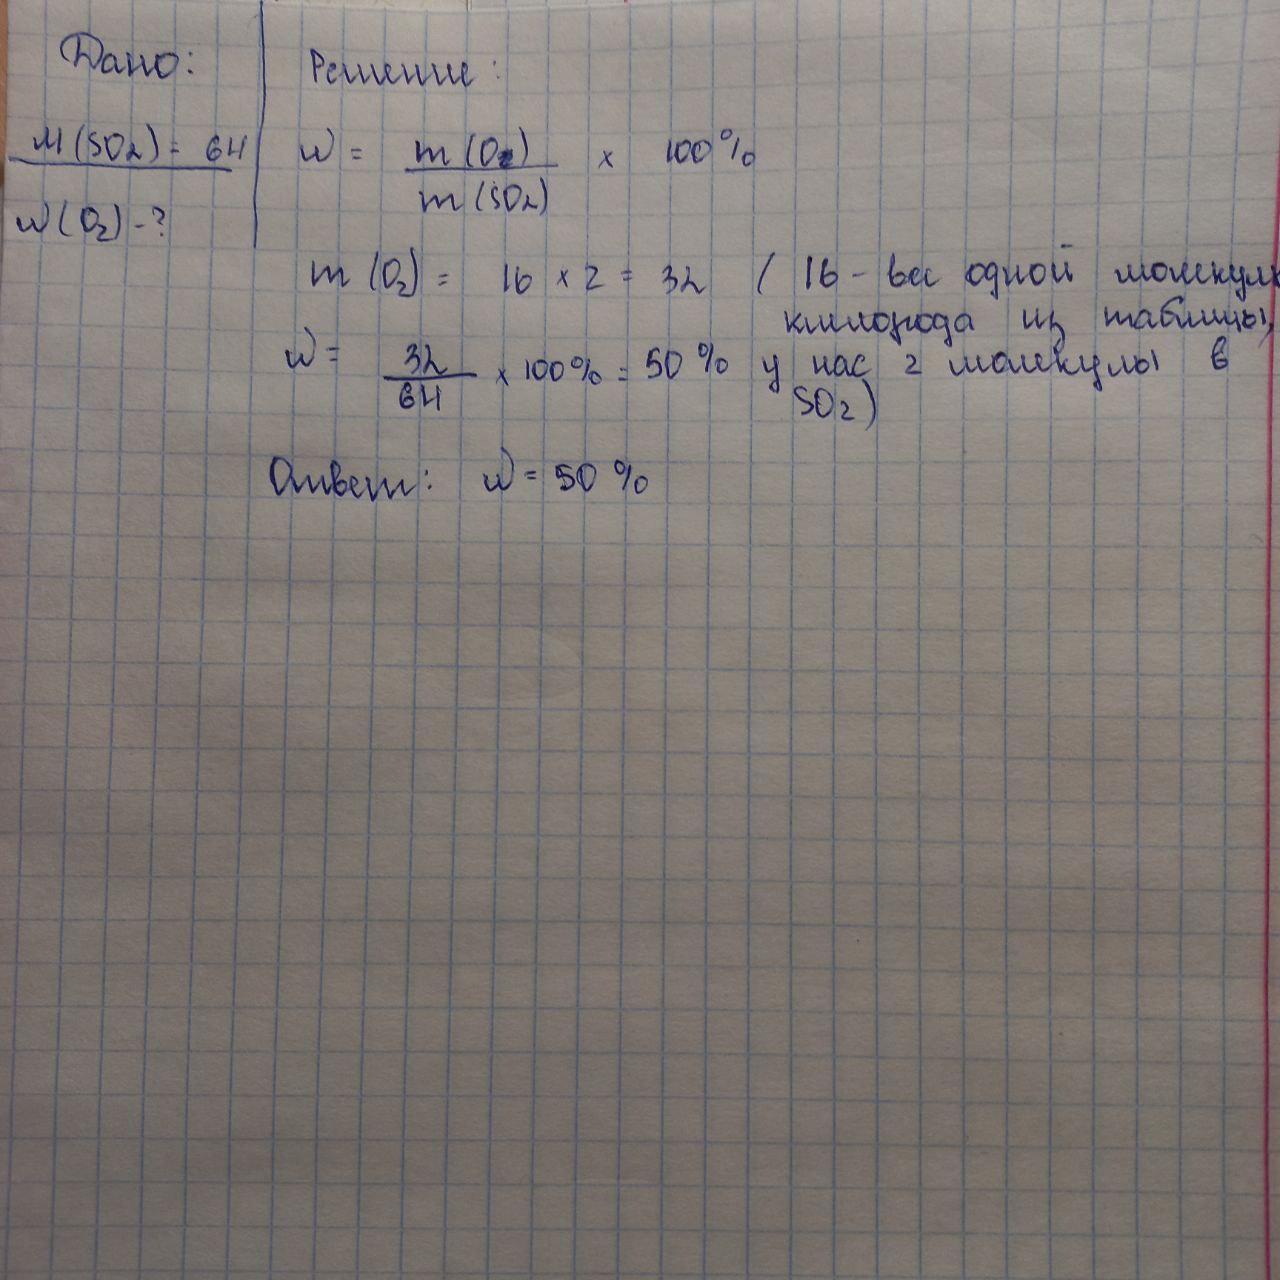 Дано:
M(SO₂) = 64
w(O₂) - ?
Решение:
w = m(O₂) / m(SO₂) × 100%
m(O₂) = 16 × 2 = 32 (16 - вес одной молекулы
кислорода из таблицы,
w = 32 / 64 × 100% = 50% у нас 2 молекулы в
SO₂)
Ответ: w = 50%